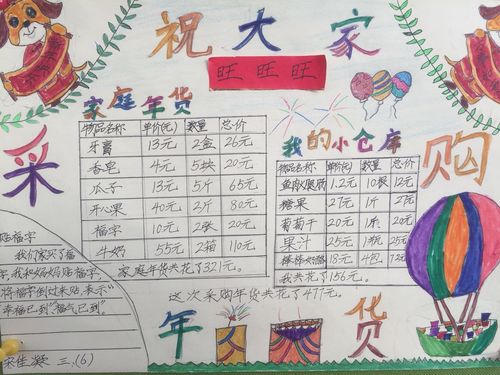 祝大家
旺旺旺
采购年货
家庭年货
物品名称 单价(元) 数量 总价
牙膏 13元 2盒 26元
香皂 4元 5块 20元
瓜子 13元 5斤 65元
开心果 40元 2斤 80元
福字 10元 2张 20元
牛奶 55元 2箱 110元
家庭年货共花了321元。
我的小仓库
物品名称 单价(元) 数量 总价
1.2元 10根 12元
糖果 27元 1斤 27元
葡萄干 20元 1斤 20元
果汁 25元 1瓶 25元
棒棒奶糖 18元 4包 72元
我共花了156元。
这次采购年货共花了477元。
贴福字
我们家买了福
字,我和妈妈贴福字,
将福字倒过来贴,表示“
幸福已到”“福气已到”。
宋佳凝 三.(6)